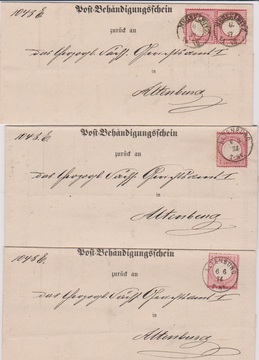 1045 b.
Post-Behändigungsschein
zurück an
das Herzogl Sächs Gerichtsamt I
in
Altenburg
1045 b.
Post-Behändigungsschein
zurück an
das Herzogl Sächs Gerichtsamt I
in
Altenburg
1045 b.
Post-Behändigungsschein
zurück an
das Herzogl Sächs Gerichtsamt I
in
Altenburg